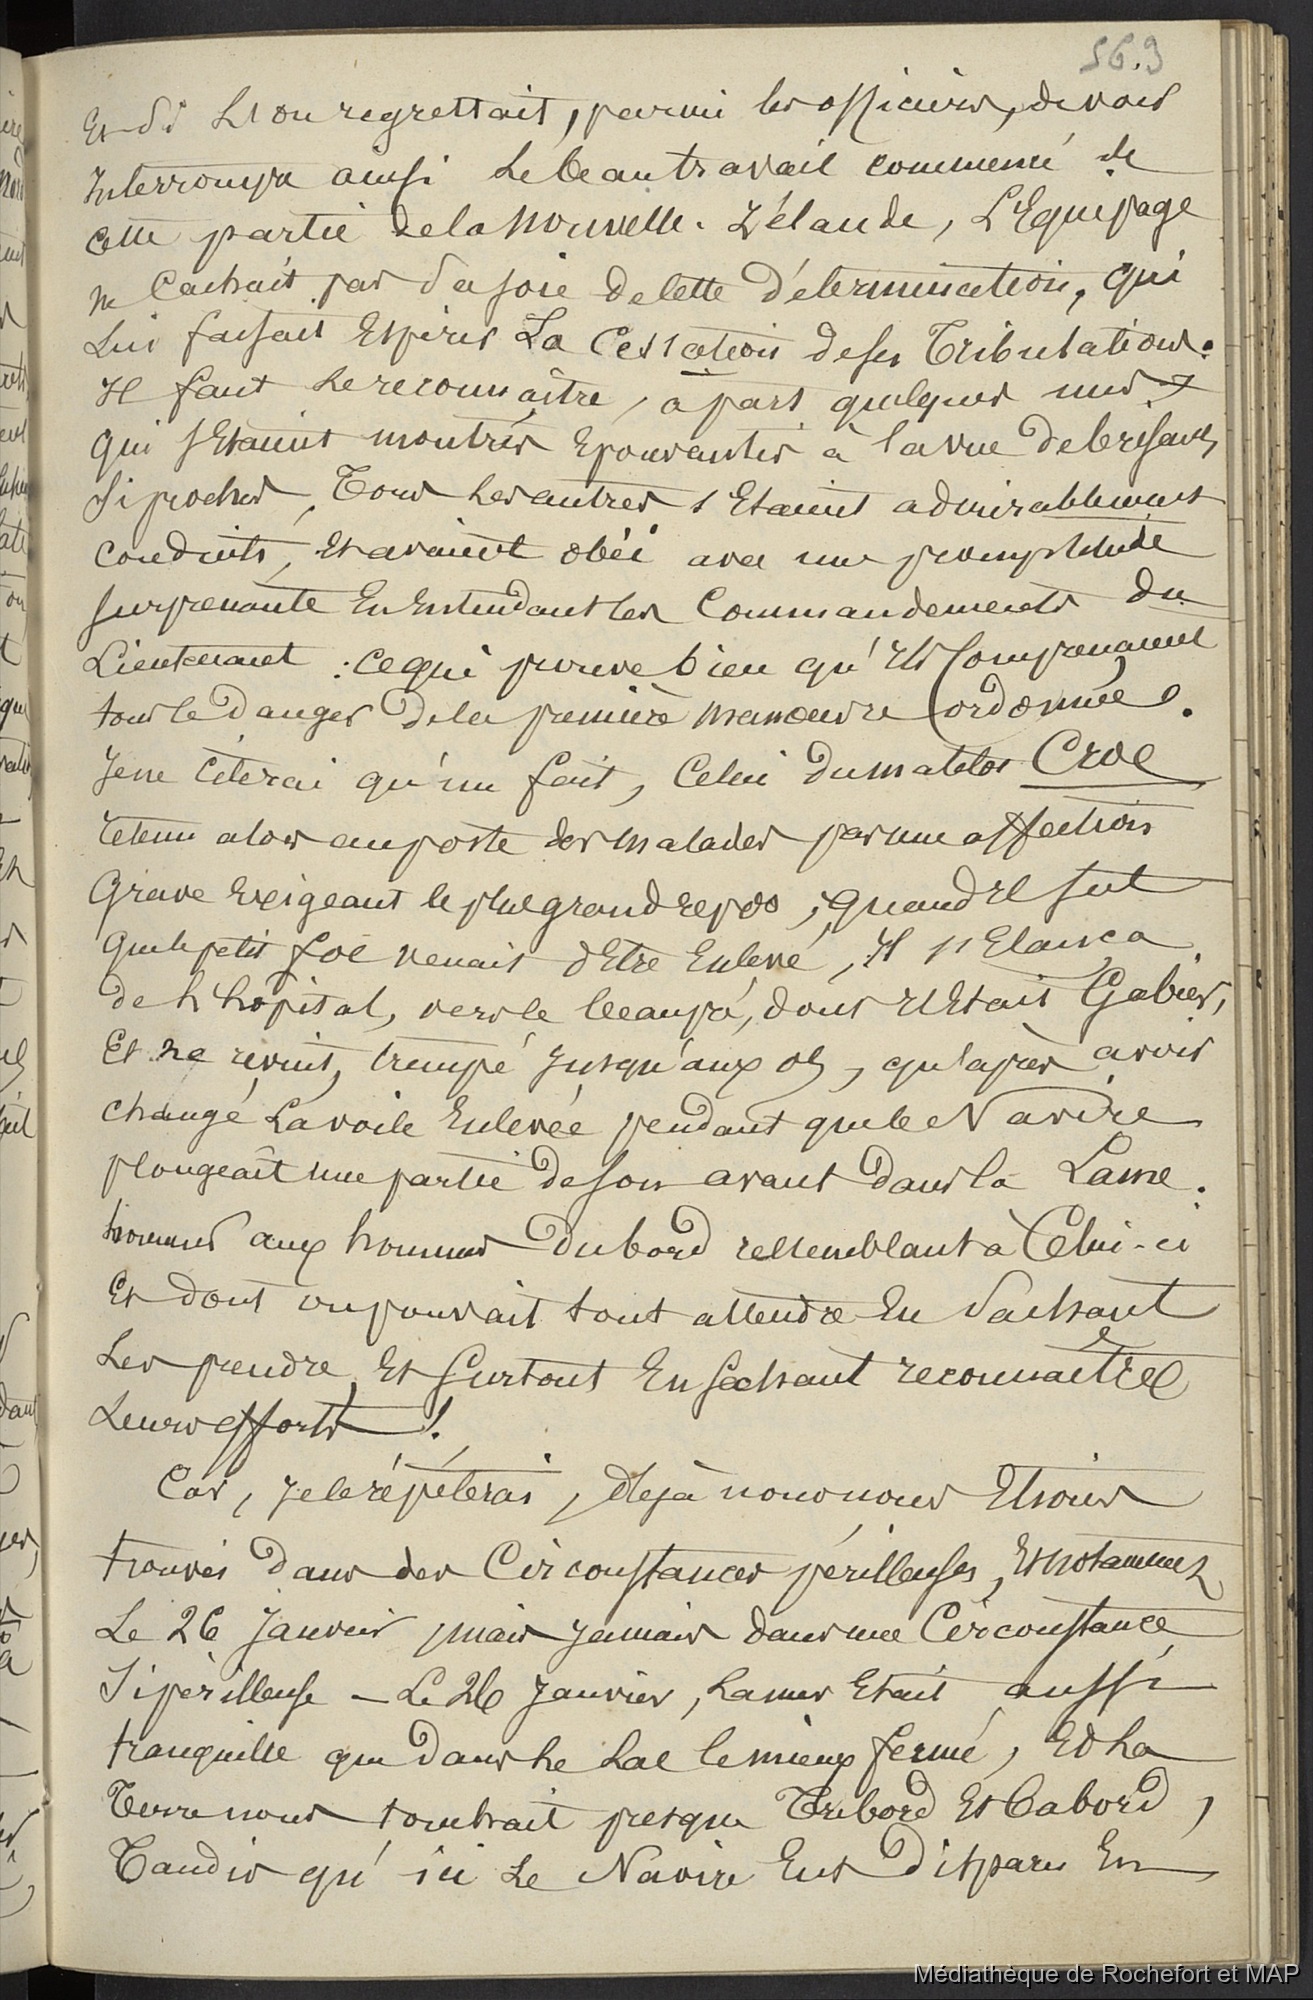 569
Et si l'on regrettait, parmi les officiers, de voir
Interrompre ainsi le beau travail commencé de
cette partie de la Nouvelle-Zélande, L'Equipage
ne Cachait pas sa joie de cette Détermination, qui
Lui faisait Espérer La Cessation de ses Tribulations.
Il faut le reconnaître, à part quelques uns
qui s'Etaient montrés Epouvantés à la vue de brisans
si proches, Tous les autres s'Etaient admirablement
conduits, Et avaient obéi avec une promptitude
surprenante En Entendant les Commandements du
Lieutenant : ce qui prouve bien qu'Ils Comprenaient
tout le danger de la première manoeuvre ordonnée.
Je ne citerai qu'un fait, Celui du matelot Croc
retenu alors au poste des malades par une affection
Grave Exigeant le plus grand repos ; quand Il sut
que le petit foc venait d'Etre Enlevé, Il s'Elança
de l'hôpital, vers le beaupré, dont Il Etait Gabier,
Et ne revint, trempé Jusqu'aux os, qu'après avoir
changé La voile Enlevée pendant que le Navire
plongeait une partie de son avant dans la Lame.
honneur aux hommes du bord ressemblant à Celui-ci
Et dont on pouvait tout attendre En Sachant
Les prendre, Et Surtout En Sachant reconnaître
Leurs efforts !
Car, Je le répéterai, déjà nous nous Etions
trouvés dans des Circonstances périlleuses, Et notamment
Le 26 Janvier mais Jamais dans une Circonstance
Si périlleuse - Le 26 Janvier, La mer Etait aussi
tranquille que dans Le Lac le mieux fermé, Et La
Terre nous touchait presque Tribord Et babord,
Tandis qu'ici Le Navire Eut Disparu En
Médiathèque de Rochefort et MAP